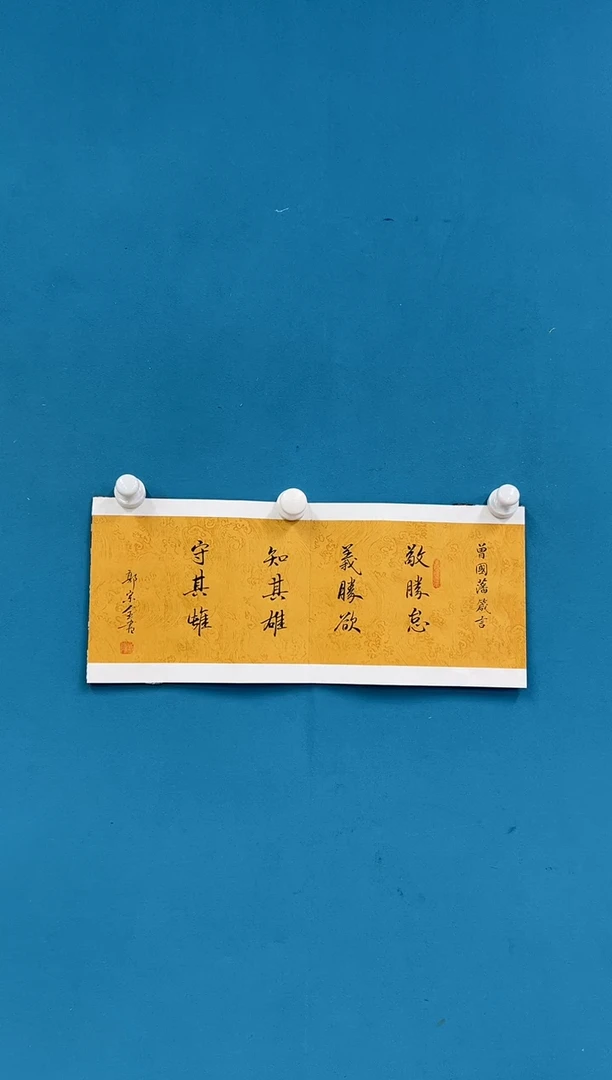 曾國藩箴言
敬勝怠
義勝欲
知其雄
守其雌